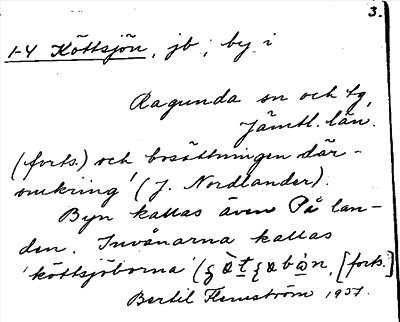 3.
1-4 Köttsjön, jb, by i
Ragunda sn och tg,
Jämtl. län.
(forts.) och bosättningen där-
omkring' (J. Nordlander).
Byn kallas även På lan-
den. Invånarna kallas
'köttsjöborna' ( [forts.]
Bertil Flemström 1951.